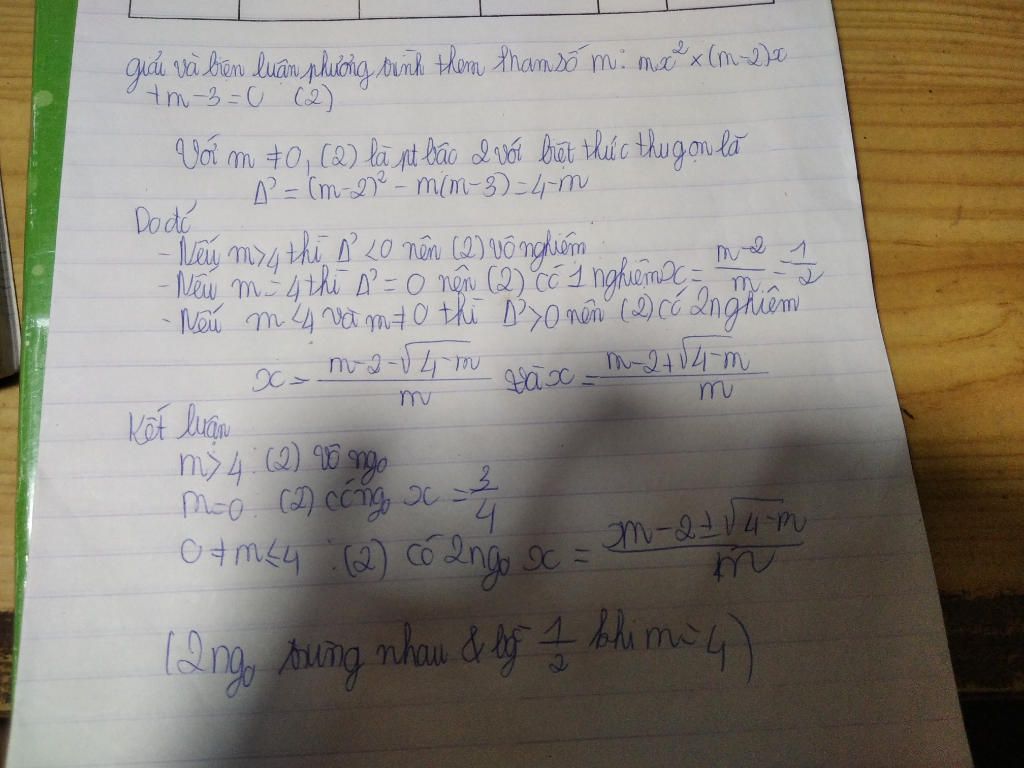 giải và biện luận phương trình them tham số m: mx² × (m-2)x
+m-3=0 (2)
Với m ≠0, (2) là pt bâc 2 với biệt thức thu gọn là
Δ' = (m-2)² - m(m-3) = 4-m
Do đó
- Nếu m>4 thì Δ' <0 nên (2) vô nghiệm
- Nếu m=4 thì Δ' =0 nên (2) có 1 nghiệm x = (m-2)/m = 1/2
- Nếu m<4 và m≠0 thì Δ'>0 nên (2) có 2 nghiệm
x = (m-2-√(4-m))/m và x = (m-2+√(4-m))/m
Kết luận
m>4 : (2) vô ngo
m=0 : (2) có ngo x = 3/4
0≠m≤4 : (2) có 2ngo x = (m-2±√(4-m))/m
(2ngo trung nhau & bg 1/2 khi m=4)